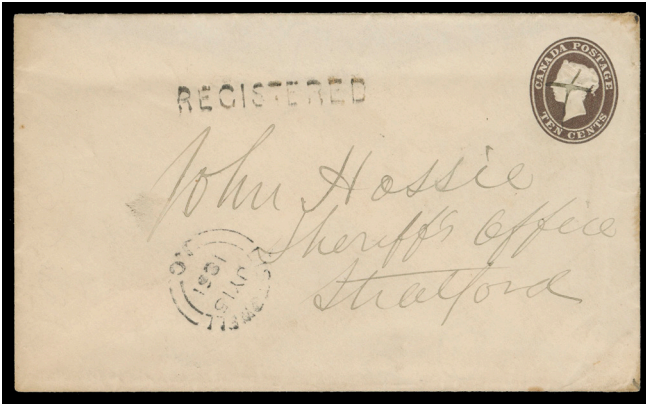 REGISTERED
CANADA POSTAGE
TEN CENTS
John Hossie
Sheriff's Office
Stratford